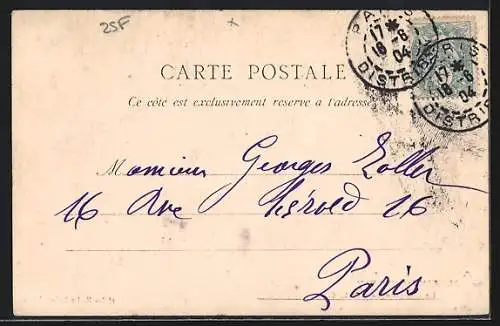 25F
PARIS
17*
18-6
04
DISTRIB
PARIS
17*
18-6
04
DISTRIB
CARTE POSTALE
Ce côté est exclusivement réservé à l'adresse
Monsieur Georges Zoller
16 Rue Hérold 16
Paris